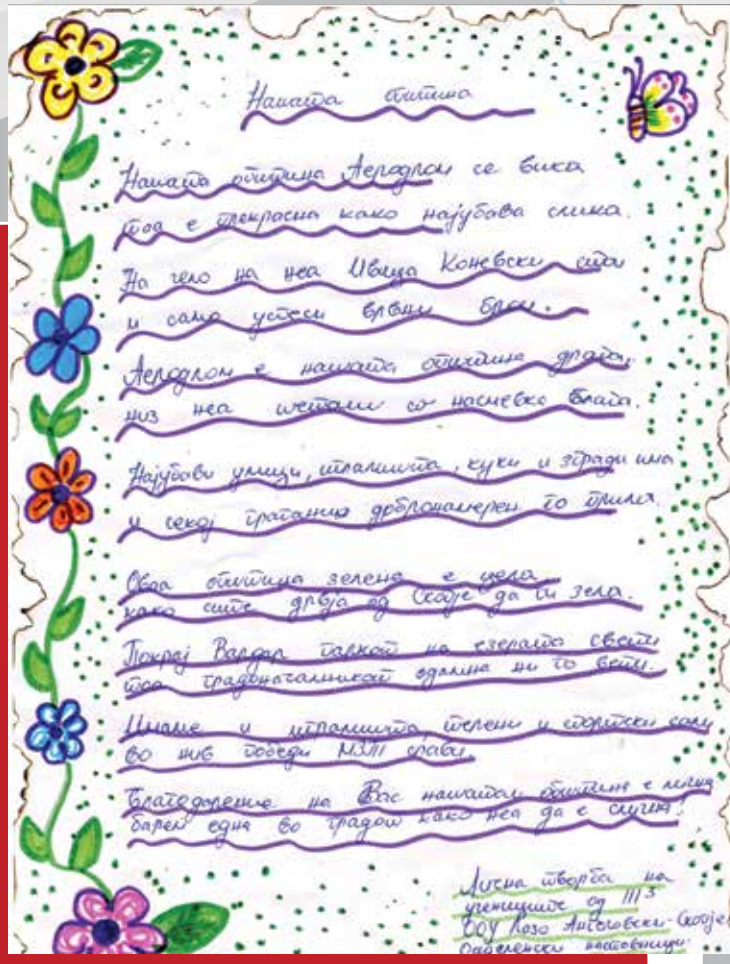 Нашата општина
Нашата општина Аеродром се вика
тоа е прекрасна како најубава слика.
На чело на неа Ивица Коневски стои
и само успеси врвни брои.
Аеродром е нашата општина драга,
низ неа шетаме со насмевка блага.
Најубави улици, игралишта, куќи и згради има
и секој граѓанин добронамерен го прима.
Оваа општина зелена е цела
како сите дрвја од Скопје да ги зела.
Покрај Вардар паркот на езерата свети
тоа градоначалникот одлично ни го вети.
Имаме и игралишта, терени и спортски сали
во нив победи МЗТ слави.
Благодарение на Вас нашата општина е лична
барем една во градов како неа да е слична!
Лична творба на
учениците од III3
ООУ Лазо Ангеловски - Скопје
Одделенски наставници: